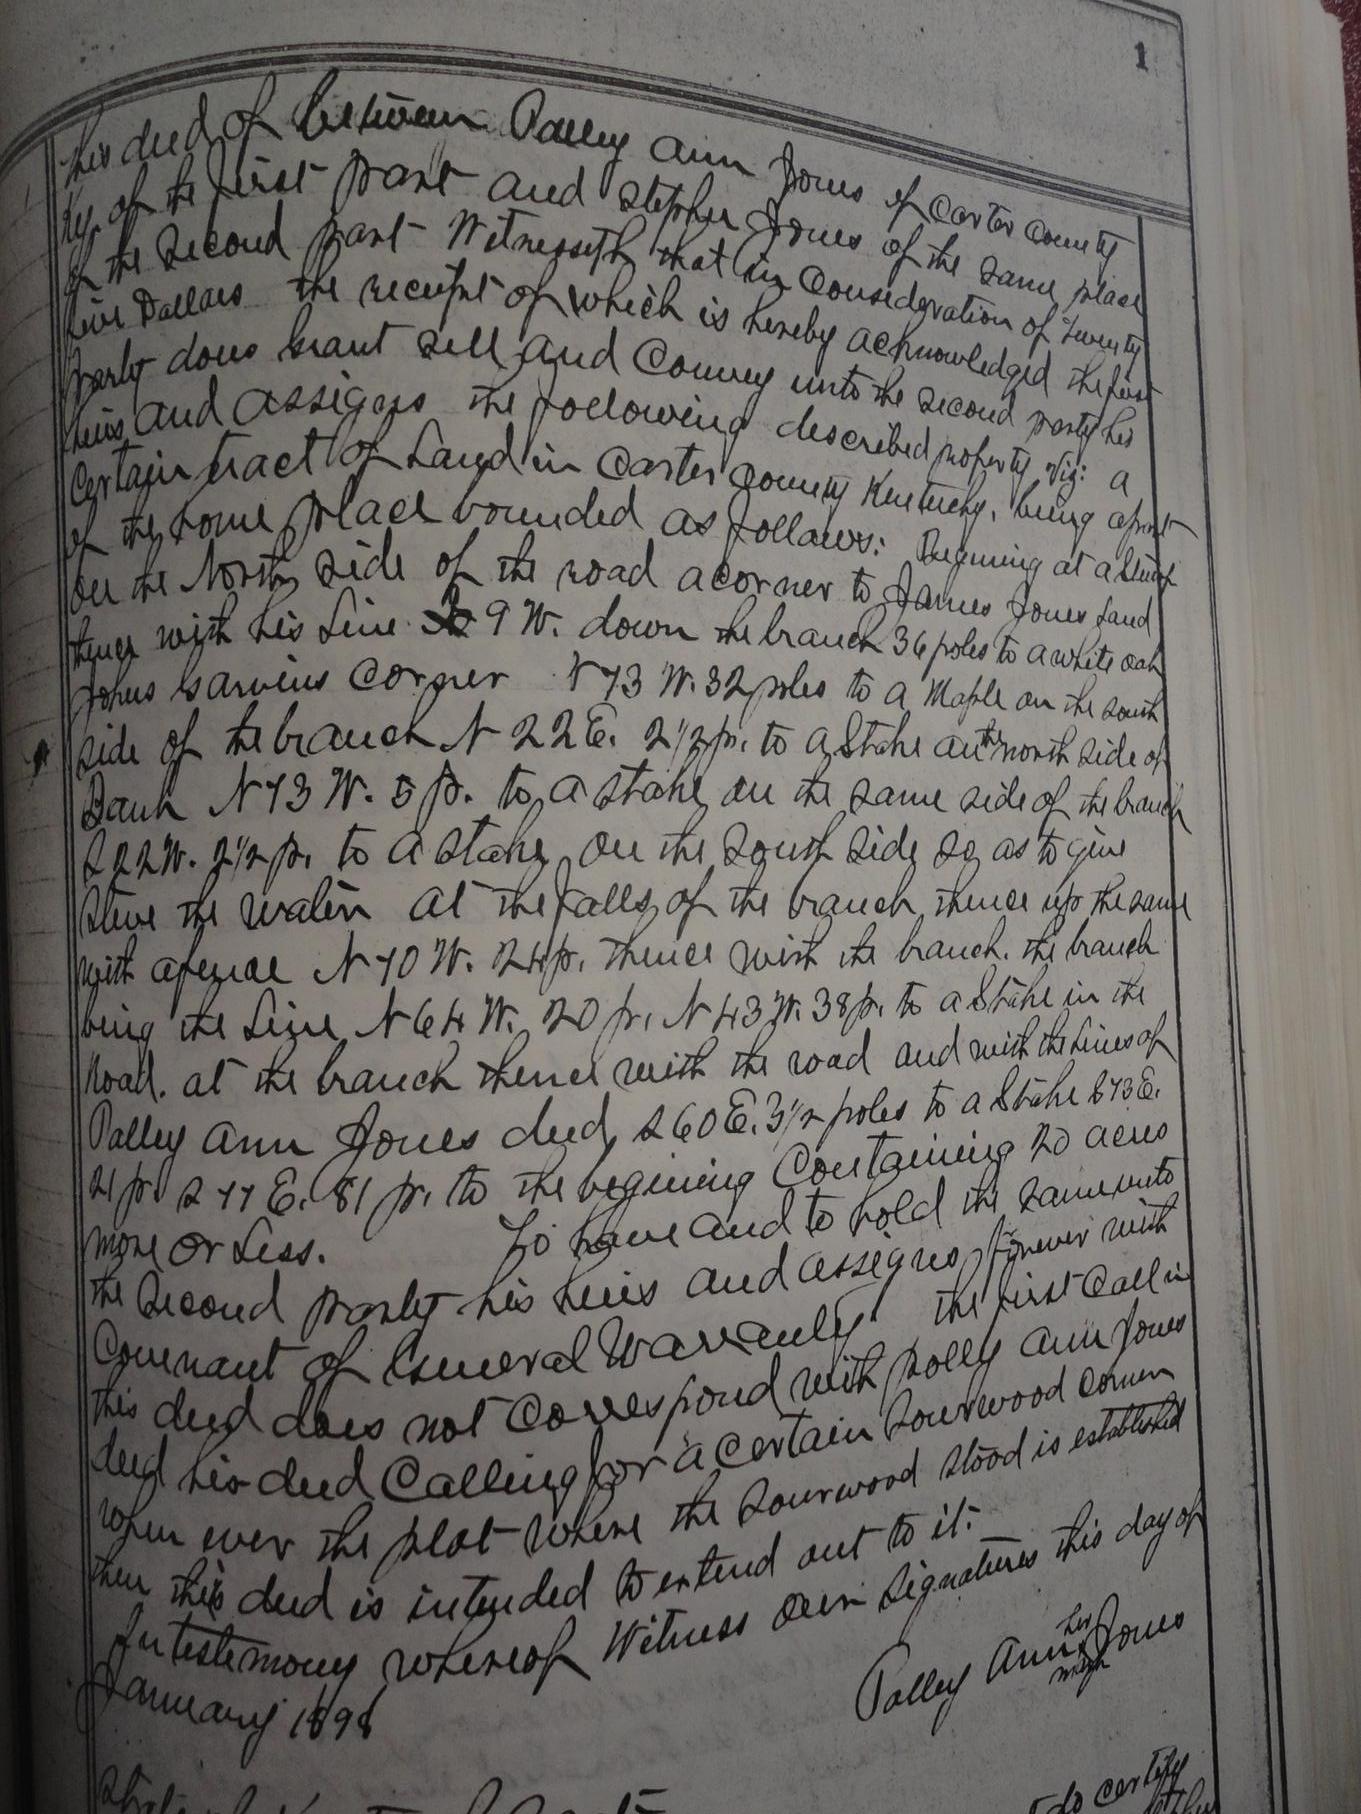 1
This deed of between Polley Ann Jones of Carter County
Ky. of the first part and Stephen Jones of the same place
of the second part Witnesseth that in Consideration of twenty
five Dollars the receipt of which is hereby acknowledged the first
party does Grant sell and Convey unto the second party his
heirs and assigns the following described property Viz: a
Certain tract of Land in Carter County Kentucky, being a part
of the home place bounded as follows: Begining at a Stump
on the North side of the road a corner to James Jones Land
thence with his Line 9 W. down the branch 36 poles to a white oak
Johns Garvins Corner N 73 W. 32 poles to a Maple on the south
side of the branch N 22 E. 2 1/2 p. to a Stake on the north side of
Bank N 73 W. 5 p. to a stake on the same side of the branch
S 22 W. 2 1/2 p. to a stake on the South side so as to give
Steve the water at the falls of the branch thence up the same
with a fence N 70 W. 24 p. thence with the branch. the branch
being the Line N 64 W. 20 p. N 43 W. 38 p. to a Stake in the
Road. at the branch thence with the road and with the Lines of
Polley Ann Jones deed S 60 E. 3 1/2 poles to a Stake S 73 E.
21 p. S 77 E. 81 p. to the begining Containing 20 acres
more or Less. To have and to hold the same unto
the Second party his heirs and assigns forever with
Covenant of General Warranty the first Call in
this deed does not Correspond with polly ann Jones
deed his deed Calling for a certain Sourwood corner
when ever the plat where the Sourwood stood is established
then this deed is intended to extend out to it.
In testimony whereof Witness our Signatures this day of
January 1898
Polley Ann her X mark Jones
do certify